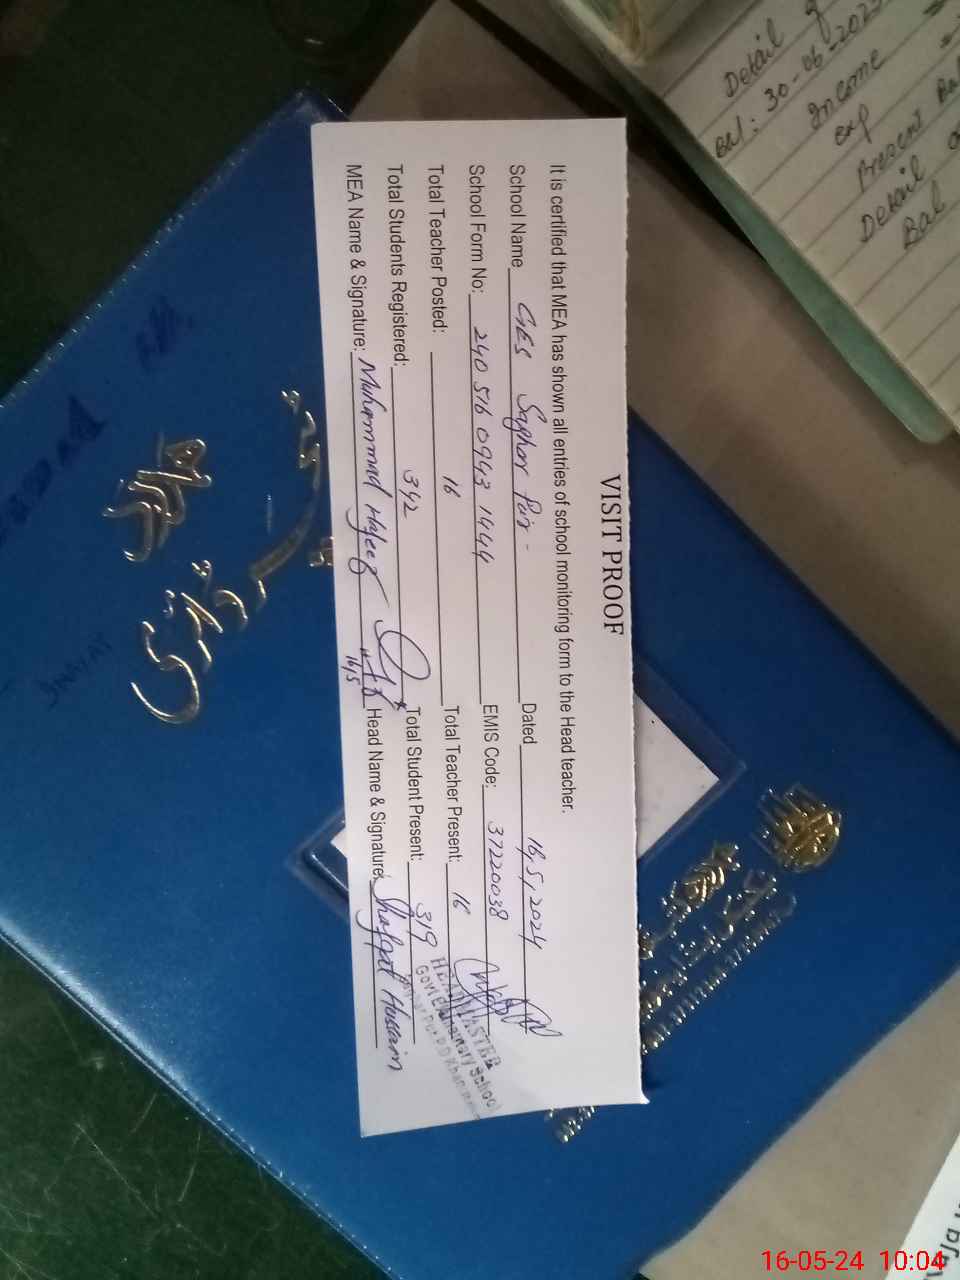 VISIT PROOF
It is certified that MEA has shown all entries of school monitoring form to the Head teacher.
School Name GES Saghar Pur - Dated 16,5,2024
School Form No: 240 516 0943 1444 EMIS Code: 37220038
Total Teacher Posted: 16 Total Teacher Present: 16
Total Students Registered: 342 Total Student Present: 319
MEA Name & Signature: Muhammad Hafeez 16/5 Head Name & Signature: Shafqat Hussain
HEADMASTER
Govt Elementary School
P.D. Khan
Detail of
Bal: 30-06-2023
Income
exp
Present Bal
Detail
Bal
معیز
ڈائری
16-05-24 10:04